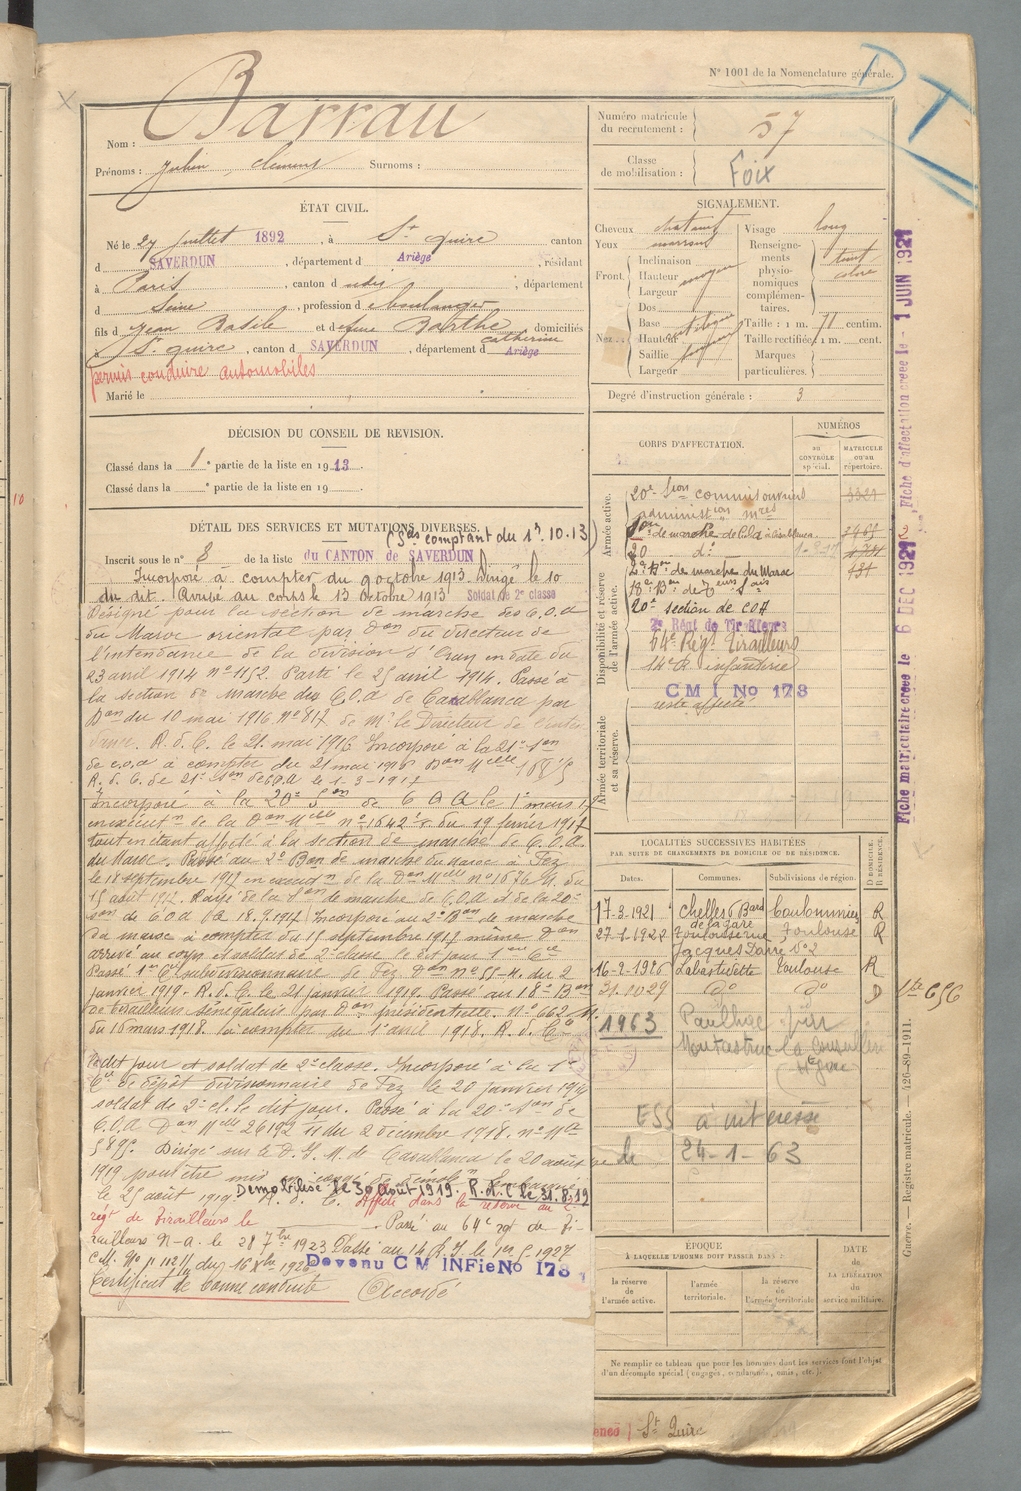 N° 1001 de la Nomenclature générale.
Barrau
Nom :
Prénoms : Julien, Clément Surnoms :
Numéro matricule du recrutement : 57
Classe de mobilisation : Foix
ÉTAT CIVIL.
Né le 27 juillet 1892, à St Quirc canton
d SAVERDUN, département d Ariège, résidant
à Paris, canton d udis, département
d Seine, profession de boulanger
fils d Jean Basile et d Barthe Catherine domiciliés
à St Quirc, canton d SAVERDUN, département d Ariège
permis conduire automobiles
Marié le
SIGNALEMENT.
Cheveux chatains
Yeux marrons
Front. Inclinaison
Hauteur moyen
Largeur
Nez.. Dos
Base
Hauteur
Saillie
Largeur
Visage long
Renseignements physionomiques complémentaires. teint coloré
Taille : 1 m. 71 centim.
Taille rectifiée 1 m. cent.
Marques particulières.
Degré d'instruction générale : 3
DÉCISION DU CONSEIL DE REVISION.
Classé dans la 1e partie de la liste en 1913
Classé dans la e partie de la liste en 19
DÉTAIL DES SERVICES ET MUTATIONS DIVERSES.
(Sces comptant du 1er.10.13)
Inscrit sous le n° 8 de la liste du CANTON de SAVERDUN
Incorporé à compter du 9 octobre 1913. Dirigé le 10
du dit. Arrivé au corps le 13 octobre 1913 Soldat de 2e classe
Désigné pour la section de marche des C.O.A
du Maroc oriental par Don du directeur de
l'intendance de la division d'Oran en date du
23 avril 1914 n° 1152. Parti le 25 avril 1914. Passé à
la section de marche des C.O.A de Casablanca par
Don du 10 mai 1916 n° 817 de Mr le Directeur de l'inten
dance. R. d. C. le 21. mai 1916 Incorporé à la 21e Son
de C.O.A à compter du 21 mai 1916 Don Melle
R. d. C. de 21e Son de C.O.A le 1-3-1917
Incorporé à la 20e Son de C O A le 1er mars 17
en exécutn de la Don Melle n° 1642 du 19 février 1917
tout en étant affecté à la section de marche de C.O.A.
du Maroc. Passé au 2e Bon de marche du Maroc à Fez
le 18 septembre 1917 en executn de la Don Melle n° 1676 M. du
15 août 1917. Rayé de la Son de marche de C.O.A et de la 20e
Son de C.O.A le 18.9.1917. Incorporé au 2e Bon de marche
du Maroc à compter du 15 septembre 1917 même Don
arrivé au corps et soldat de 2e classe le dit jour 1ere Cie
Passé 1ere Cie subdivisionnaire de Fez Don n° 55-M. du 2
janvier 1919. R. d. C. le 21 janvier 1919. Passé au 18e Bon
de tirailleurs sénégalais par Don présidentielle. n° 662 M.
du 16 mars 1918. à compter du 1er avril 1918. A. d. C.
le dit jour et soldat de 2e classe. Incorporé à la 1e
Cie de dépôt divisionnaire de Fez le 20 janvier 1919
soldat de 2e cl. le dit jour. Passé à la 20e Son de
C.O.A Don Melle 26192 du 2 décembre 1918.
Dirigé sur le D. I. M. de Casablanca le 20 août
1919 pour être mis en congé de démob
le 25 août 1919. Demobilisé le 30 août 1919. R.d.C le 31.8.19
Affecté dans la réserve au 2e
régt de Tirailleurs le
Passé au 64e rgt de Ti-
railleurs N-A. le 28 7bre 1923 Passé au 14 R.I. le 1er 5-1927
Devenu C M INFie No 178
Certificat de bonne conduite Accordé
CORPS D'AFFECTATION.
NUMÉROS
AU CONTRÔLE spécial.
MATRICULE OU AU répertoire.
Armée active.
20e Sion commis ouvriers 3321
administion mres
Son de marche de C.O.A à Casablanca 3465
20 do
2e Bon de marche du Maroc 431
18e Bn de Teurs Sais
20e section de COA
Disponibilité et réserve de l'armée active.
2e Régt de Tirailleurs
64e Régt Tirailleurs
14e R. infanterie
C M I No 178
reste affecté
Armée territoriale et sa réserve.
LOCALITÉS SUCCESSIVES HABITÉES
PAR SUITE DE CHANGEMENTS DE DOMICILE OU DE RÉSIDENCE.
Dates. Communes. Subdivisions de région. D DOMICILE. R RÉSIDENCE.
17-3-1921 Chelles Bard de la gare Coulommiers R
27-1-1922 Toulouse rue Jacques Darré n° 2 Toulouse R
16-9-1926 Labastidette Toulouse R
31.10 29 do do D
1963 Paulhac par
Montastruc la Conseillère
(Hte Gne)
ESS à intéressé
le 24-1-63
ÉPOQUE
À LAQUELLE L'HOMME DOIT PASSER DANS :
la réserve de l'armée active.
l'armée territoriale.
la réserve de l'armée territoriale
DATE de LA LIBÉRATION du service militaire.
Ne remplir ce tableau que pour les hommes dont les services font l'objet
d'un décompte spécial (engagés, condamnés, omis, etc.).
St Quirc
Fiche matriculaire créée le 6 DEC 1921, Fiche d'affectation créée le 1 JUIN 1921
Guerre. — Registre matricule. — 426-89-1911.